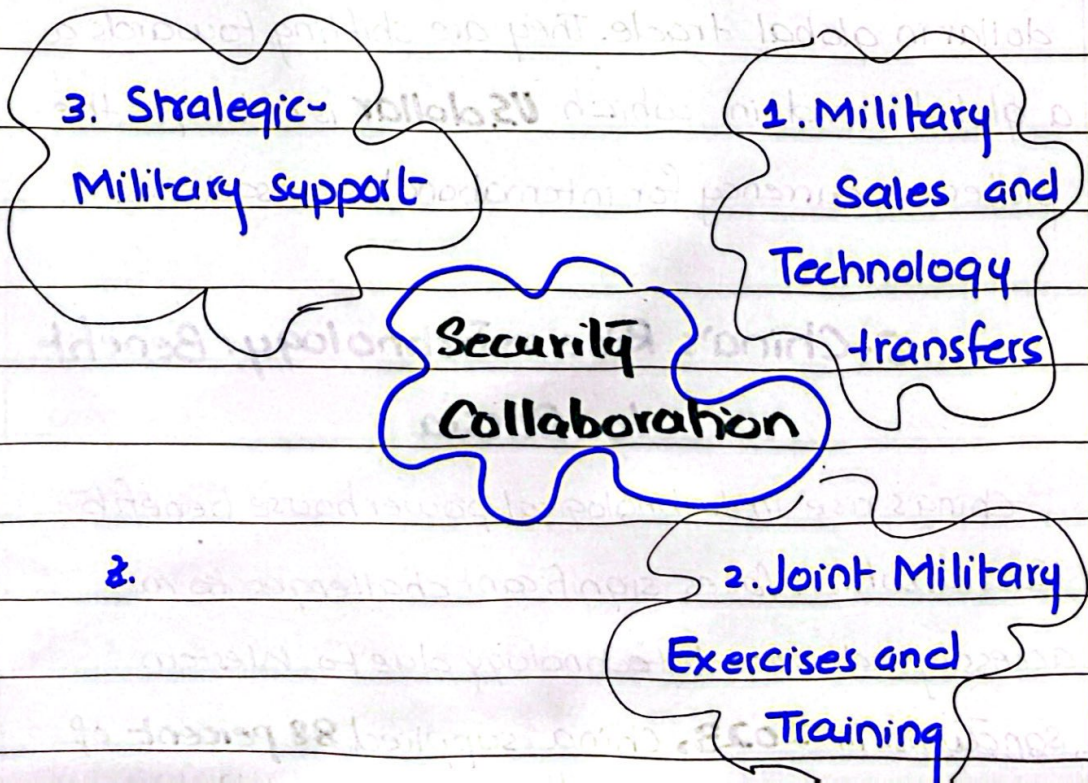 3. Strategic-
Military support
1. Military
Sales and
Technology
transfers
Security
Collaboration
2.
2. Joint Military
Exercises and
Training